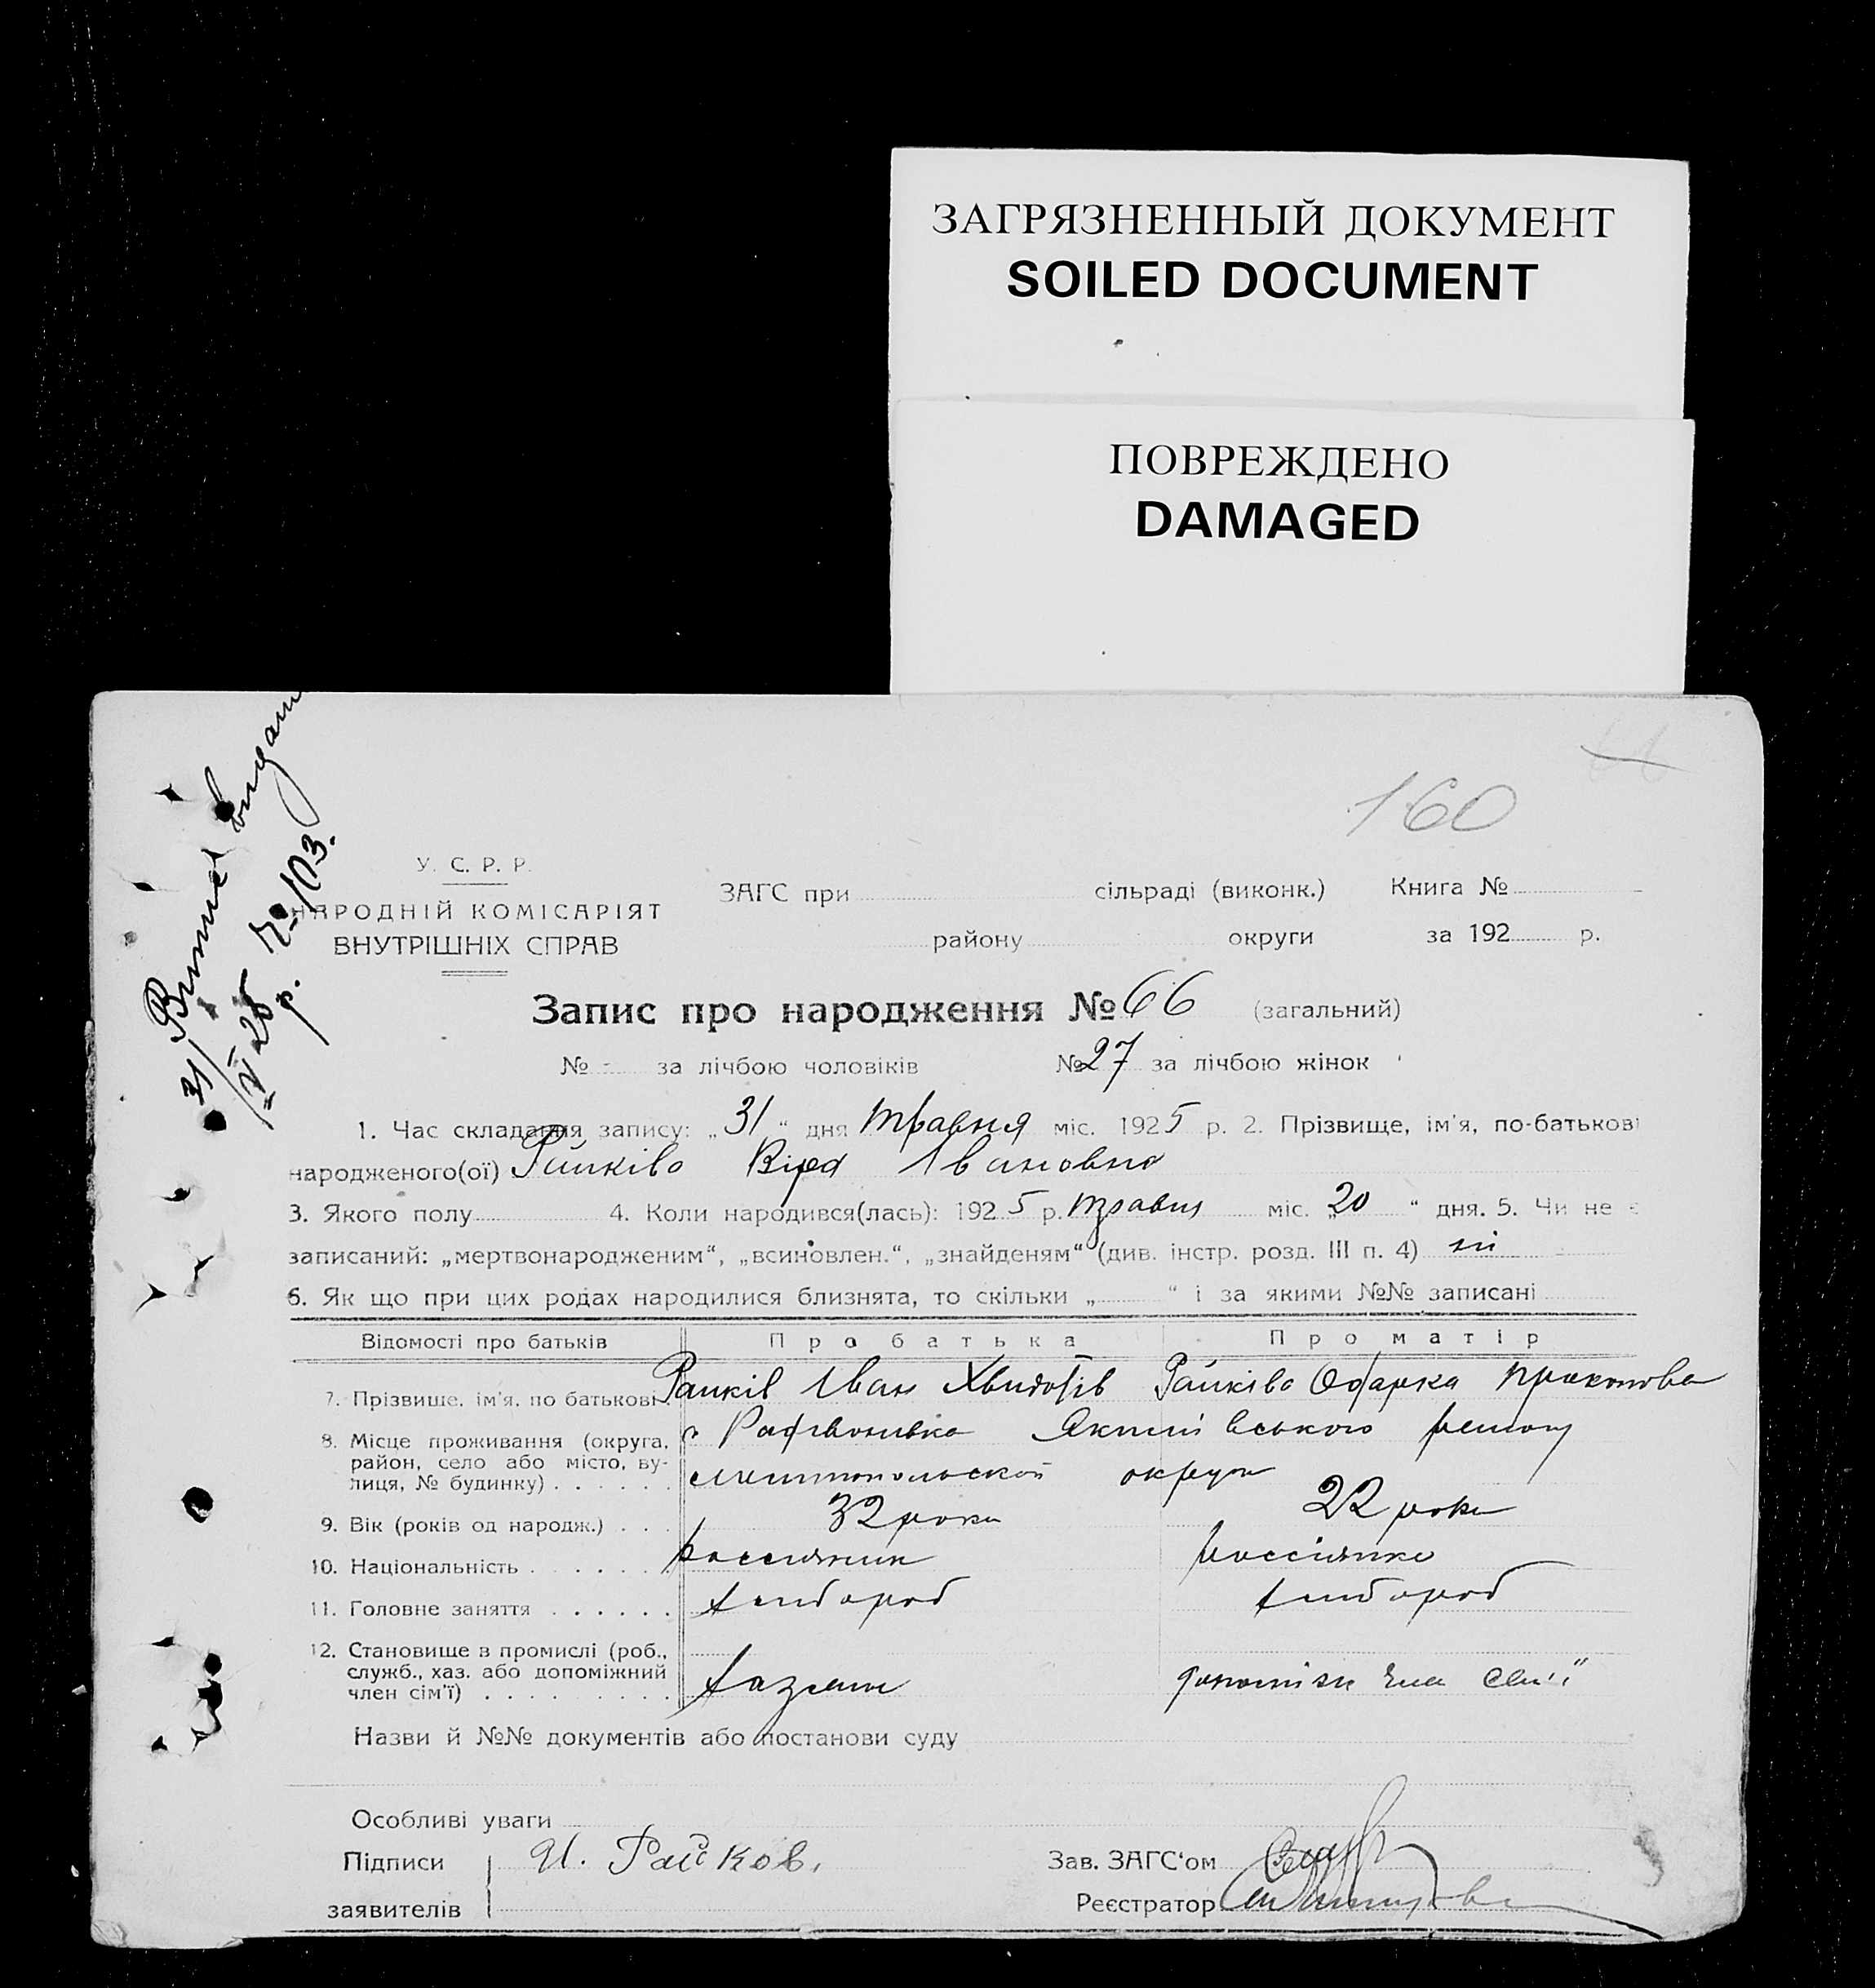 ЗАГРЯЗНЕННЫЙ ДОКУМЕНТ
SOILED DOCUMENT
ПОВРЕЖДЕНО
DAMAGED
160
Витяг видати
31/V 25 р. № 103.
У. С. Р. Р.
НАРОДНІЙ КОМІСАРІЯТ
ВНУТРІШНІХ СПРАВ
ЗАГС при сільраді (виконк.) Книга №
району округи за 192 р.
Запис про народження № 66 (загальний)
№ - за лічбою чоловіків № 27 за лічбою жінок
1. Час складання запису: „31“ дня травня міс. 1925 р. 2. Прізвище, ім'я, по-батькові
народженого(ої) Райківа Віра Івановна
3. Якого полу 4. Коли народився(лась): 1925 р. травня міс. „20“ дня. 5. Чи не є
записаний: „мертвонародженим“, „всиновлен.“, „знайденям“ (див. інстр. розд. III п. 4) ні
6. Як що при цих родах народилися близнята, то скільки „ “ і за якими №№ записані
Відомості про батьків Про батька Про матір
7. Прізвище, ім'я, по батькові Райків Іван Райківа Одарка Прокопова
8. Місце проживання (округа, район, село або місто, вулиця, № будинку) с. Якимівського району
Мелітопольской округи
9. Вік (років од народж.) 32 роки 22 роки
10. Національність россіянин россіянка
11. Головне заняття хлібороб хлібороб
12. Становище в промислі (роб., служб., хаз. або допоміжний член сім'ї) хазяин допоміжн член сем'ї
Назви й №№ документів або постанови суду
Особливі уваги
Підписи И. Райков. Зав. ЗАГС'ом
заявителів Реєстратор